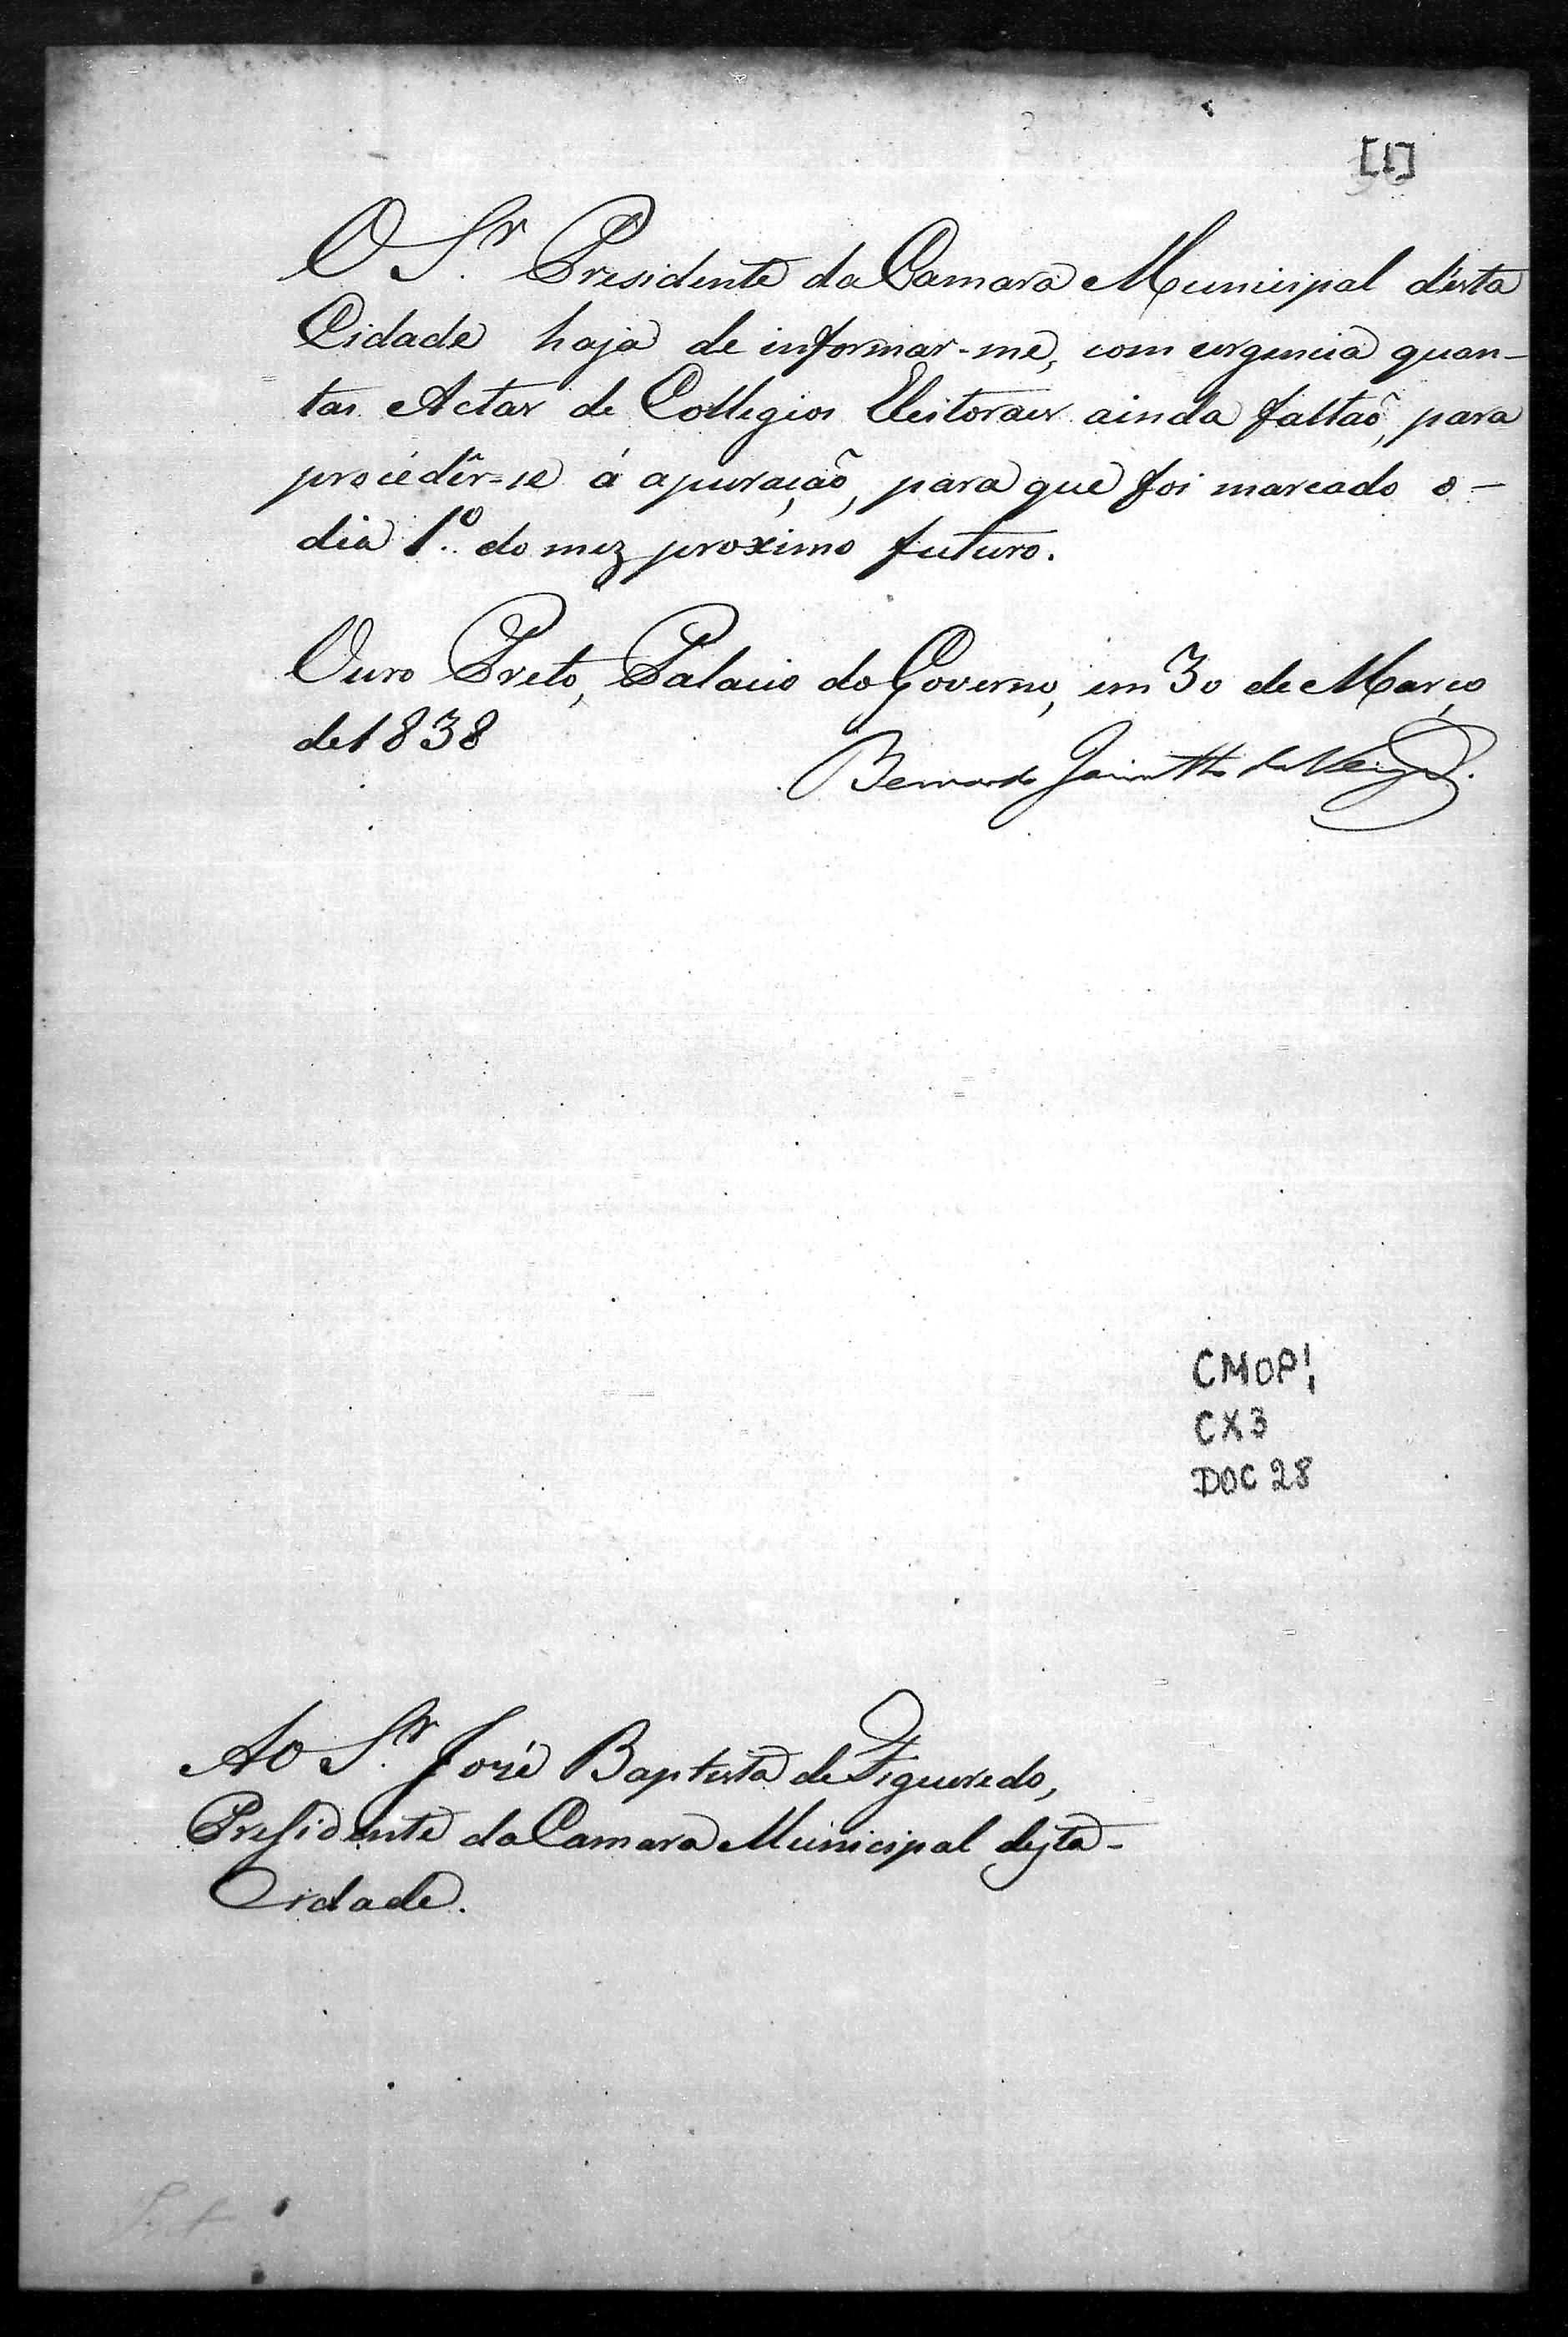 [1]
O Sr. Presidente da Camara Municipal d'esta
Cidade haja de informar-me, com urgencia quan-
tas Actas de Collegios Eleitoraes ainda faltaõ, para
procedêr-se á apuraçaõ, para que foi marcado o-
dia 1º. do mez proximo futuro.
Ouro Preto, Palacio do Governo, em 30 de Março
de 1838
Bernardo Jacintho da Veiga.
CMOP!
CX3
DOC 28
Ao Sr. José Baptista de Figueredo,
Presidente da Camara Municipal desta-
Cidade.